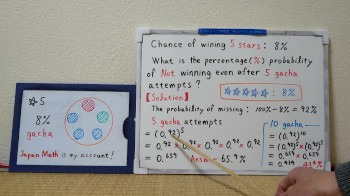 Chance of wining 5 stars : 8%
What is the percentage(%) probability
of Not winning even after 5 gacha
attempts ?
☆☆☆☆☆ : 8%
【Solution】
The probability of missing : 100% - 8% = 92%
5 gacha attempts
= (0.92)⁵
= 0.92 × 0.92 × 0.92 × 0.92 × 0.92
= 0.659
Ans 65.9%
10 gacha
= (0.92)¹⁰
= (0.92)⁵×(0.92)⁵
= 0.659 × 0.659
= 0.434
☆5
8%
gacha
Japan Math is my account!